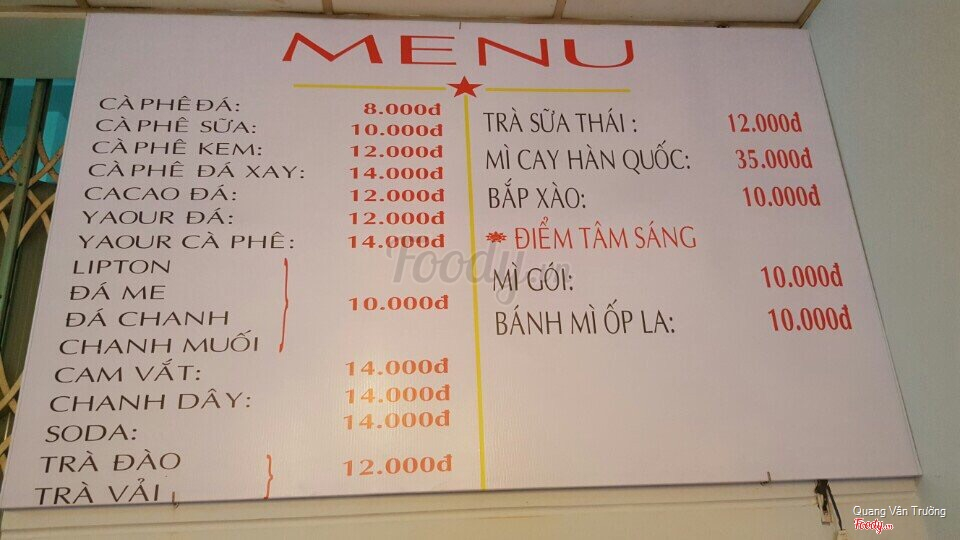 MENU
CÀ PHÊ ĐÁ: 8.000đ
CÀ PHÊ SỮA: 10.000đ
CÀ PHÊ KEM: 12.000đ
CÀ PHÊ ĐÁ XAY: 14.000đ
CACAO ĐÁ: 12.000đ
YAOUR ĐÁ: 12.000đ
YAOUR CÀ PHÊ: 14.000đ
LIPTON
ĐÁ ME
10.000đ
ĐÁ CHANH
CHANH MUỐI
CAM VẮT: 14.000đ
CHANH DÂY: 14.000đ
SODA: 14.000đ
TRÀ ĐÀO
12.000đ
TRÀ VẢI
TRÀ SỮA THÁI : 12.000đ
MÌ CAY HÀN QUỐC: 35.000đ
BẮP XÀO: 10.000đ
* ĐIỂM TÂM SÁNG
MÌ GÓI: 10.000đ
BÁNH MÌ ỐP LA: 10.000đ
Foody.vn
Quang Văn Trường
Foody.vn